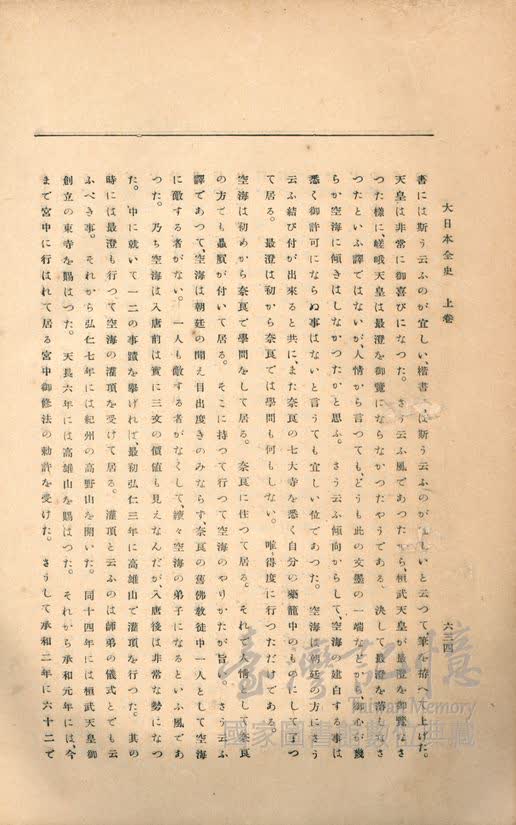 大日本全史　上卷
六三四
書には斯う云ふのが宜しい、楷書には斯う云ふのが宜しいと云つて、筆を拵へて上げた。
天皇は非常に御喜びになつた。さう云ふ風であつたから、桓武天皇が最澄を御覽なさ
つた樣に、嵯峨天皇は最澄を御覽にならなかつたやうである。決して最澄を落しなさ
つたといふ譯ではないが、人情から言つても、どうも此の文墨の一端などから、御心が幾
らか空海に傾きはしなかつたかと思ふ。さう云ふ傾向からして、空海の建白する事は
悉く御許可にならぬ事はないと言うても宜しい位であつた。空海は朝廷の方にさう
云ふ結び付が出來ると共に、また奈良の七大寺を悉く自分の藥籠中のものにして了つ
て居る。最澄は初から奈良では學問も何もしない。唯得度に行つただけである。
空海は初めから奈良で學問をして居る。奈良に住つて居る。それで人情として奈良
の方でも贔屓が付いて居る。そこに持つて行つて空海のやりかたが旨い。さう云ふ
譯であつて、空海は朝廷の聞え目出度きのみならず、奈良の舊佛敎徒中一人として空海
に敵する者がない。一人も敵する者がなくして、續々空海の弟子になるといふ風であ
つた。乃ち空海は入唐前は實に三文の價値も見えなんだが、入唐後は非常な勢になつ
た。中に就いて一二の事蹟を擧げれば、最初弘仁三年に高雄山で灌頂を行つた。其の
時には最澄も行つて空海の灌頂を受けて居る。灌頂と云ふのは師弟の儀式とでも云
ふべき事。それから弘仁七年には紀州の高野山を開いた。同十四年には桓武天皇御
創立の東寺を賜はつた。天長六年には高雄山を賜はつた。それから承和元年には、今
まで宮中に行はれて居る宮中御修法の勅許を受けた。さうして承和二年に六十二で
臺灣記憶
Taiwan Memory
國家圖書館數位典藏